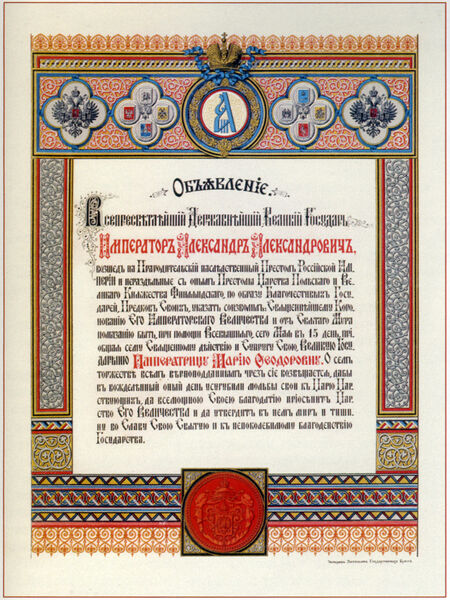 Объявленіе.
Всепресвѣтлѣйшій Державнѣйшій Великій Государь
Императоръ Александръ Александровичъ,
возшед на Прародительскій наслѣдственный Престолъ Россійской Им-
періи и нераздѣльные съ онымъ Престолы Царства Польскаго и Ве-
ликаго Княжества Финляндскаго, по образу Благочестивыхъ Госу-
дарей, Предковъ Своихъ, указать соизволилъ: Священнѣйшему Коро-
нованію Его Императорскаго Величества и отъ Святаго Мѵра
помазанію быть, при помощи Всевышняго, сего Мая въ 15 день, прі-
общая сему Священному дѣйствію и Супругу Свою, Великую Госу-
дарыню Императрицу Марію Ѳеодоровну. О семъ
торжествѣ всѣмъ вѣрноподданнымъ чрезъ сіе возвѣщается, дабы
въ вожделѣнный оный день усугубили мольбы свои къ Царю Цар-
ствующихъ, да всемощною Своею благодатію пріосѣнитъ Цар-
ство Его Величества и да утвердитъ въ немъ миръ и тиши-
ну во Славу Свою Святую и къ непоколебимому благоденствію
Государства.
Экспедиція Заготовленія Государственныхъ Бумагъ.